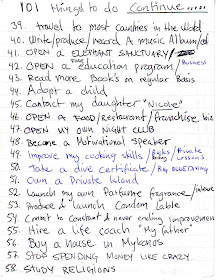 101 things to do Continue.....
39. travel to most countries in the World
40. Write/produce/record A music Album/
41. OPEN A ELEPHANT SANCTUARY/
42. OPEN A education program/Business
43. Read more Book's on regular Basis
44. Adopt a child
45. Contact my daughter "Nicole"
46. OPEN A FOOD/restaurant/franchise, biz
47. OPEN MY OWN NIGHT CLUB
48. Become A Motivational speaker
49. Improve my cooking skills/Books/Private Lessons
50. Take a dive certificate/
51. Own a Private Island
52. Launch my own Parfume fragrance/
53. Produce & launch Condom Lable
54. Commit to Constant & never ending improvement
55. Hire a life coach "My father"
56. Buy a house in Mykonos
57. STOP SPENDING MONEY LIKE CRAZY
58. STUDY RELIGIONS